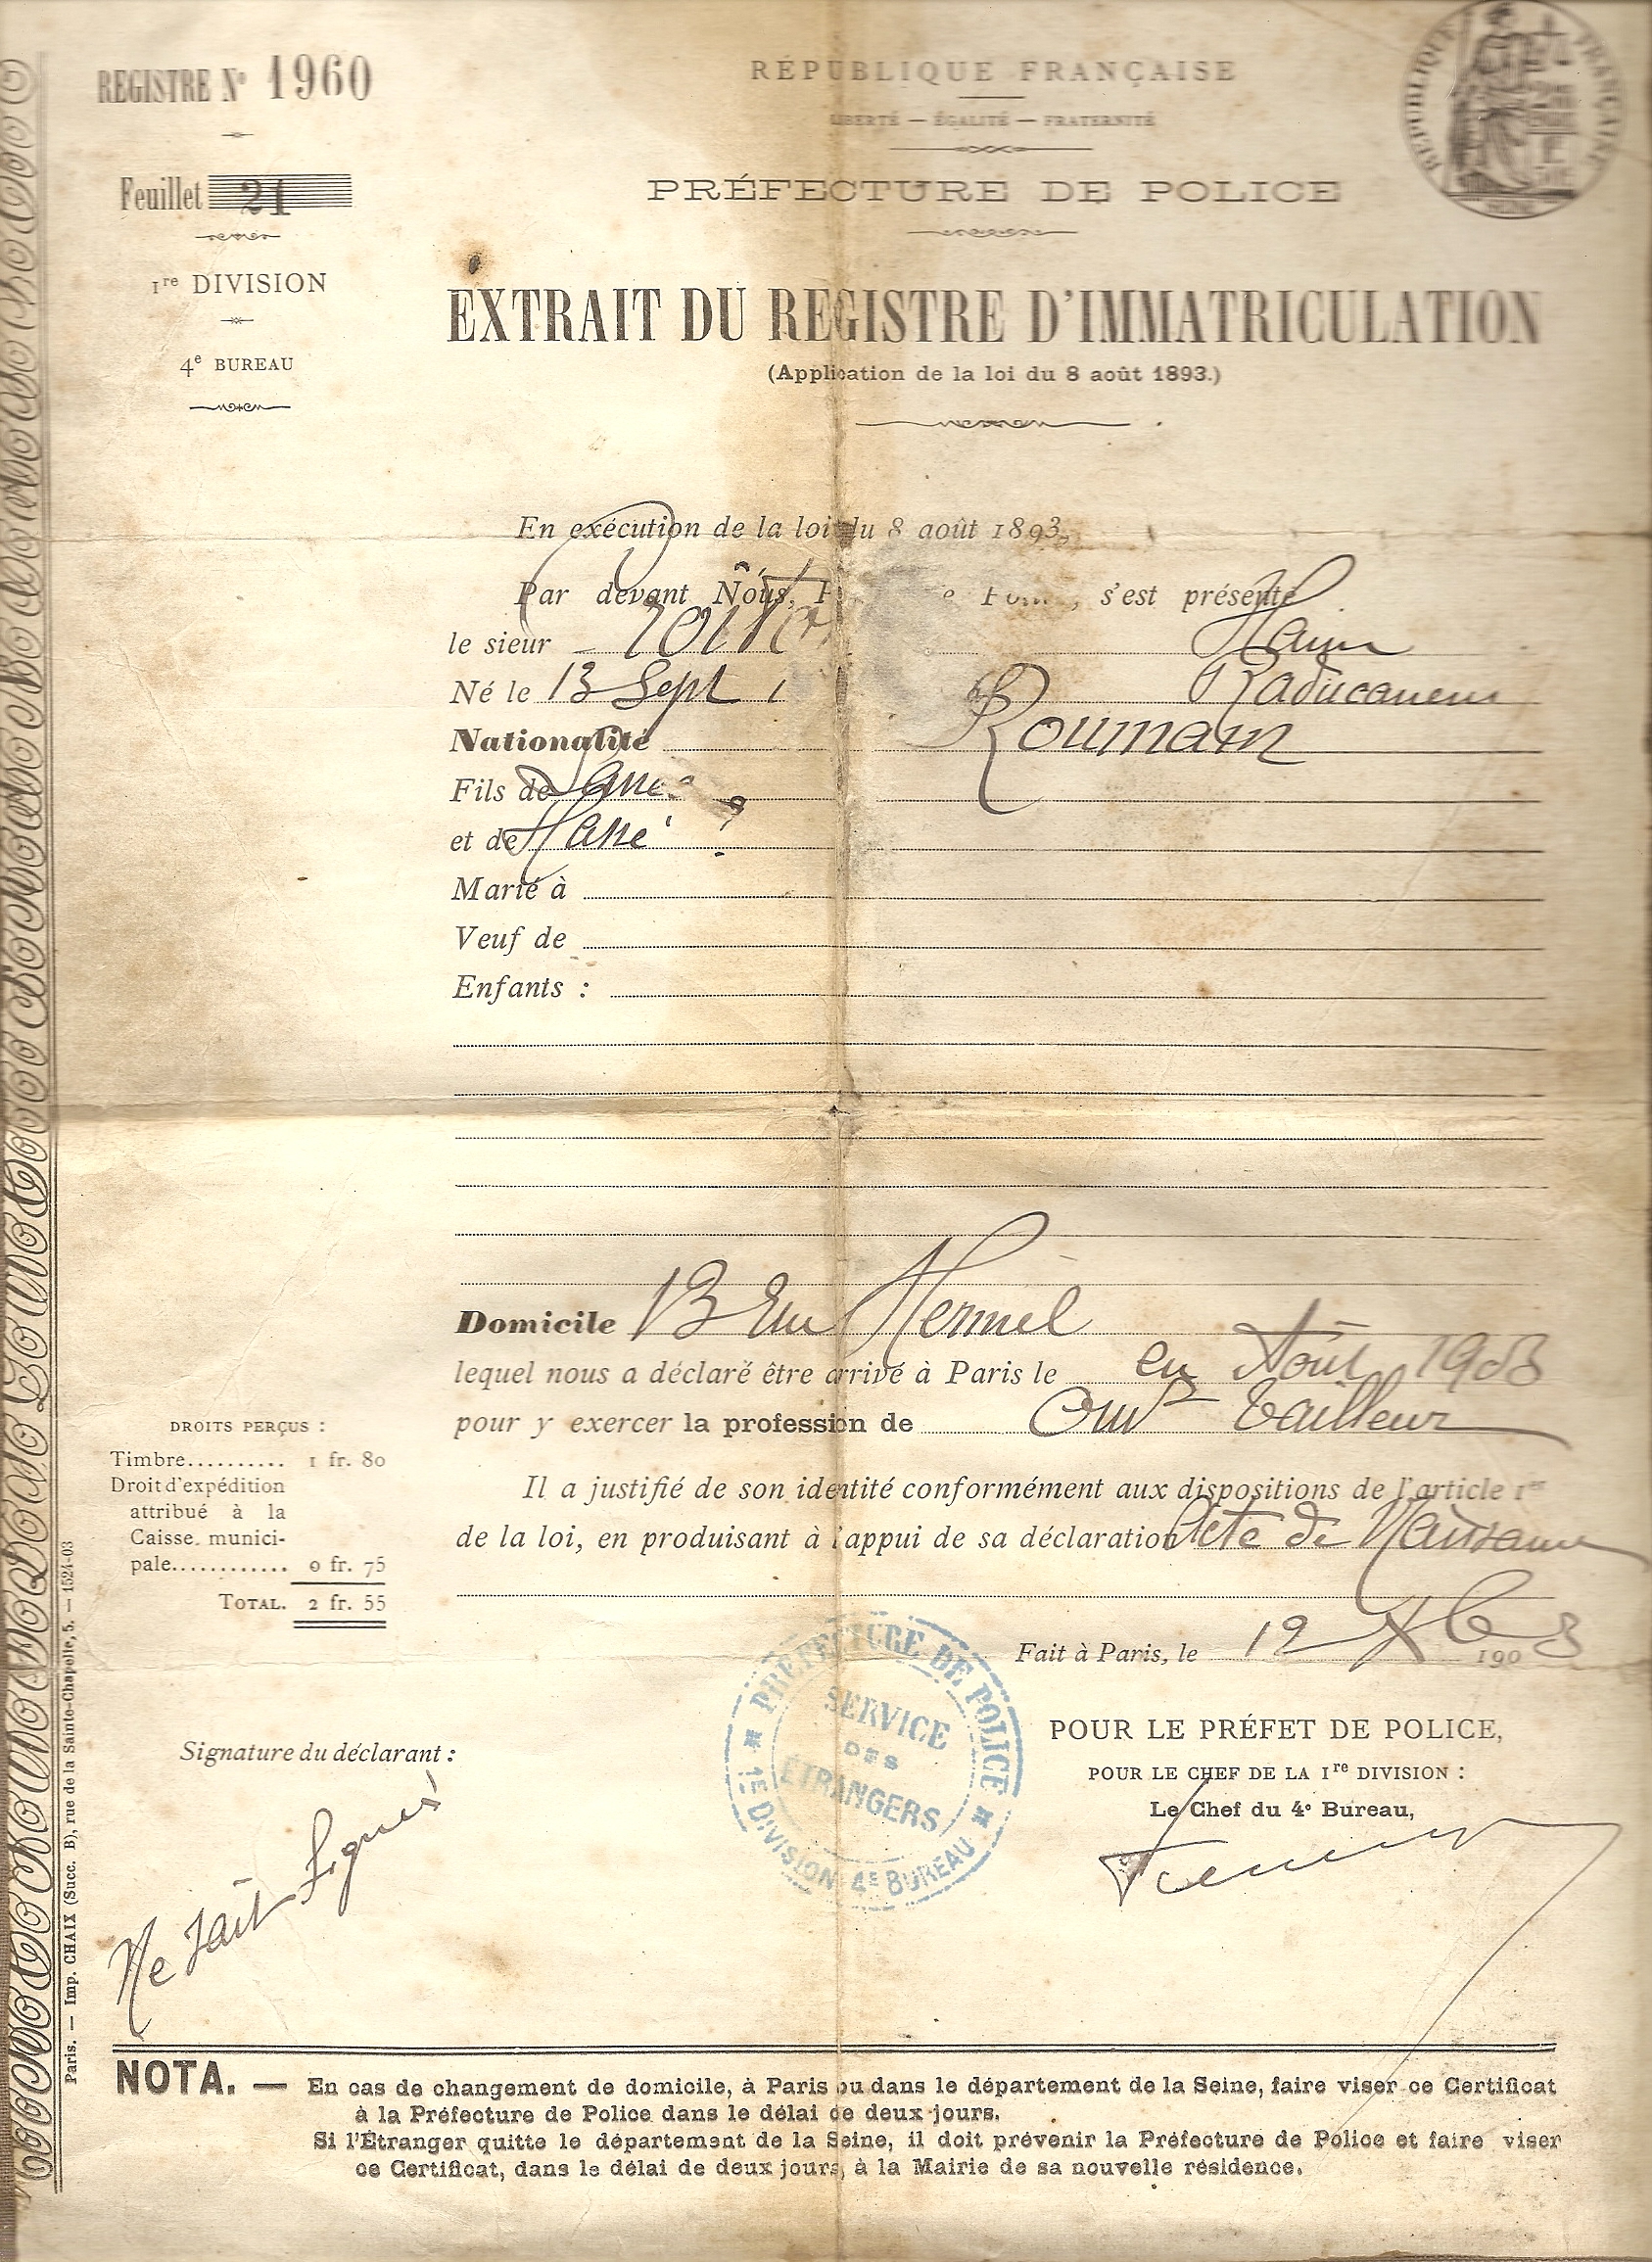 REGISTRE N° 1960
Feuillet 21
1re DIVISION
4e BUREAU
RÉPUBLIQUE FRANÇAISE
LIBERTÉ — ÉGALITÉ — FRATERNITÉ
PRÉFECTURE DE POLICE
RÉPUBLIQUE FRANÇAISE
EXTRAIT DU REGISTRE D'IMMATRICULATION
(Application de la loi du 8 août 1893.)
En exécution de la loi du 8 août 1893,
Par devant Nous, s'est présenté
le sieur Haim
Né le 13 Sept
Nationalité Roumain
Fils de
et de
Marié à
Veuf de
Enfants :
Domicile 13 Rue Hermel
lequel nous a déclaré être arrivé à Paris le en Août 1903
pour y exercer la profession de Ouvr Tailleur
Il a justifié de son identité conformément aux dispositions de l'article 1er
de la loi, en produisant à l'appui de sa déclaration Acte de Naissance
Fait à Paris, le 12 Xbre 1903
DROITS PERÇUS :
Timbre.......... 1 fr. 80
Droit d'expédition
attribué à la
Caisse munici-
pale............ 0 fr. 75
TOTAL. 2 fr. 55
PRÉFECTURE DE POLICE
SERVICE
DES
ÉTRANGERS
1E DIVISION 4E BUREAU
POUR LE PRÉFET DE POLICE,
POUR LE CHEF DE LA 1re DIVISION :
Le Chef du 4e Bureau,
Signature du déclarant :
Ne sait signer
Paris. — Imp. CHAIX (Succ. B), rue de la Sainte-Chapelle, 5. — 1524-03
NOTA. — En cas de changement de domicile, à Paris ou dans le département de la Seine, faire viser ce Certificat
à la Préfecture de Police dans le délai de deux jours.
Si l'Étranger quitte le département de la Seine, il doit prévenir la Préfecture de Police et faire viser
ce Certificat, dans le délai de deux jours, à la Mairie de sa nouvelle résidence.